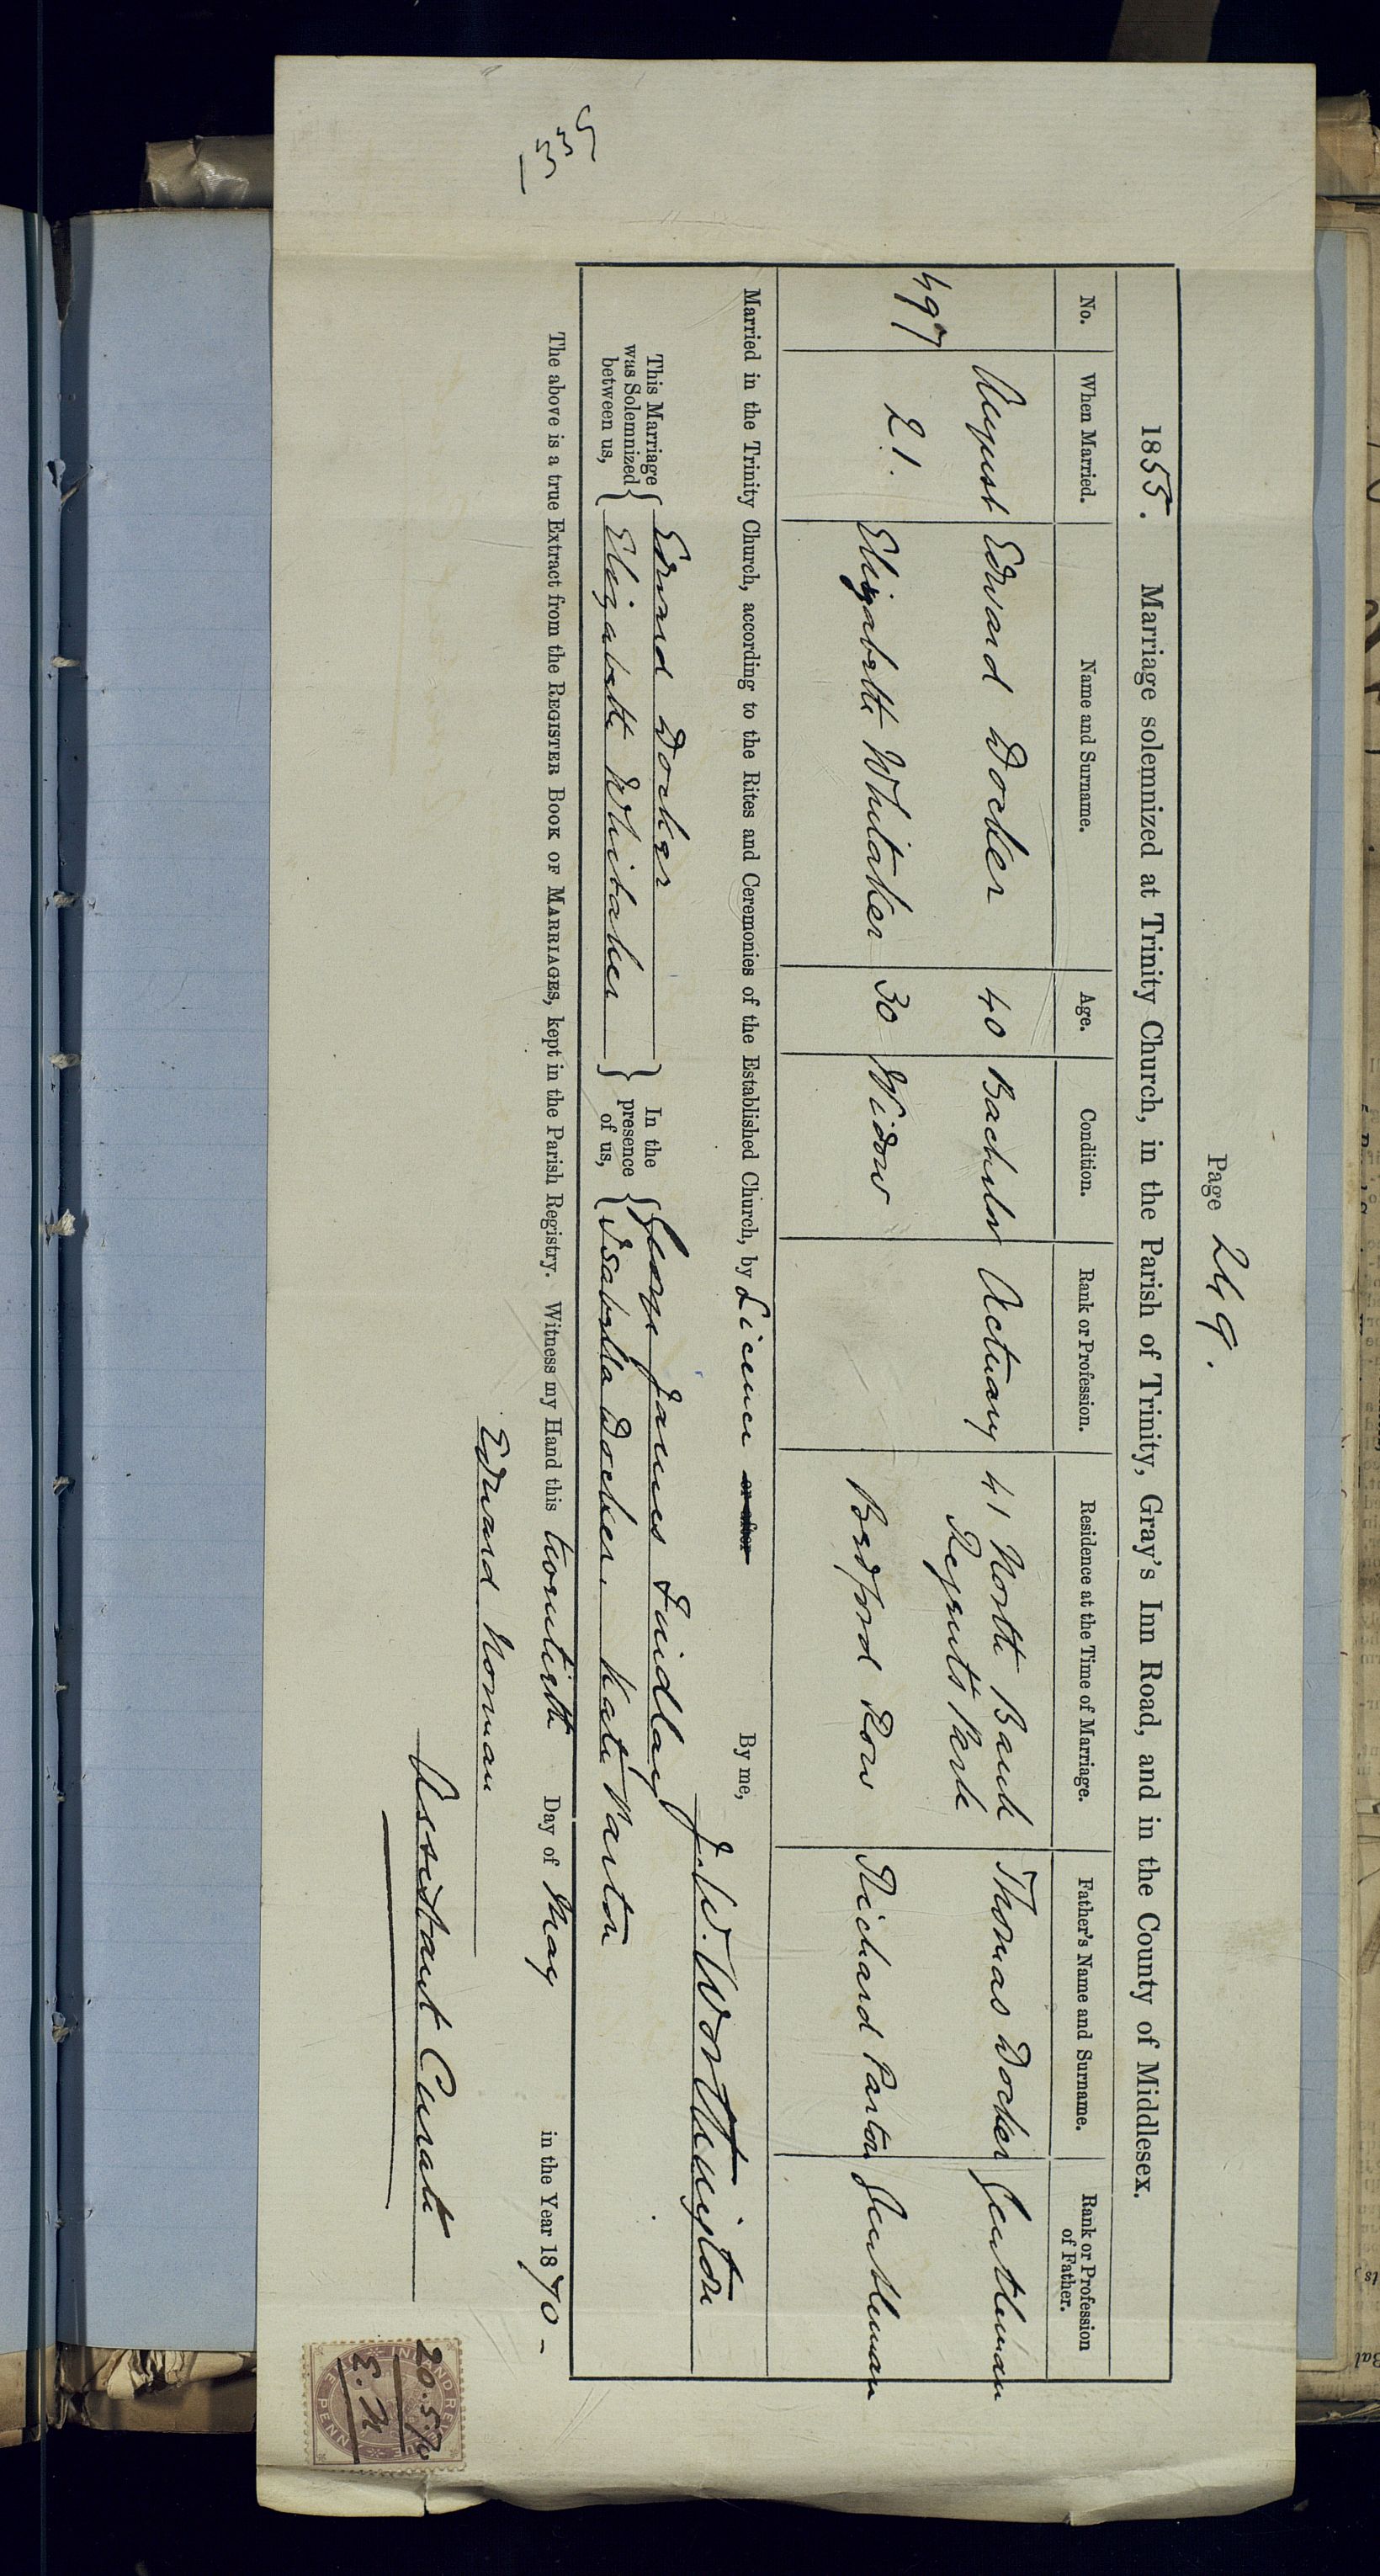 Page 249.
1855. Marriage solemnized at Trinity Church, in the Parish of Trinity, Gray's Inn Road, and in the County of Middlesex.
No. When Married. Name and Surname. Age. Condition. Rank or Profession. Residence at the Time of Marriage. Father's Name and Surname. Rank or Profession of Father.
497 August 21. Edward Docker 40 Bachelor Actuary 41 North Bank Regents Park Thomas Docker Gentleman
Elizabeth Whitaker 30 Widow Bedford Row Richard Parton Gentleman
Married in the Trinity Church, according to the Rites and Ceremonies of the Established Church, by Licence or after By me,
J. W. Worthington
This Marriage was Solemnized between us, Edward Docker Elizabeth Whitaker
In the presence of us, George James Findlay Isabella Docker. Kate Parton
The above is a true Extract from the REGISTER BOOK OF MARRIAGES, kept in the Parish Registry. Witness my Hand this twentieth Day of May in the Year 1870-
Edward Norman
Assistant Curate
INLAND REVENUE
PENNY
20.5.70
E. N